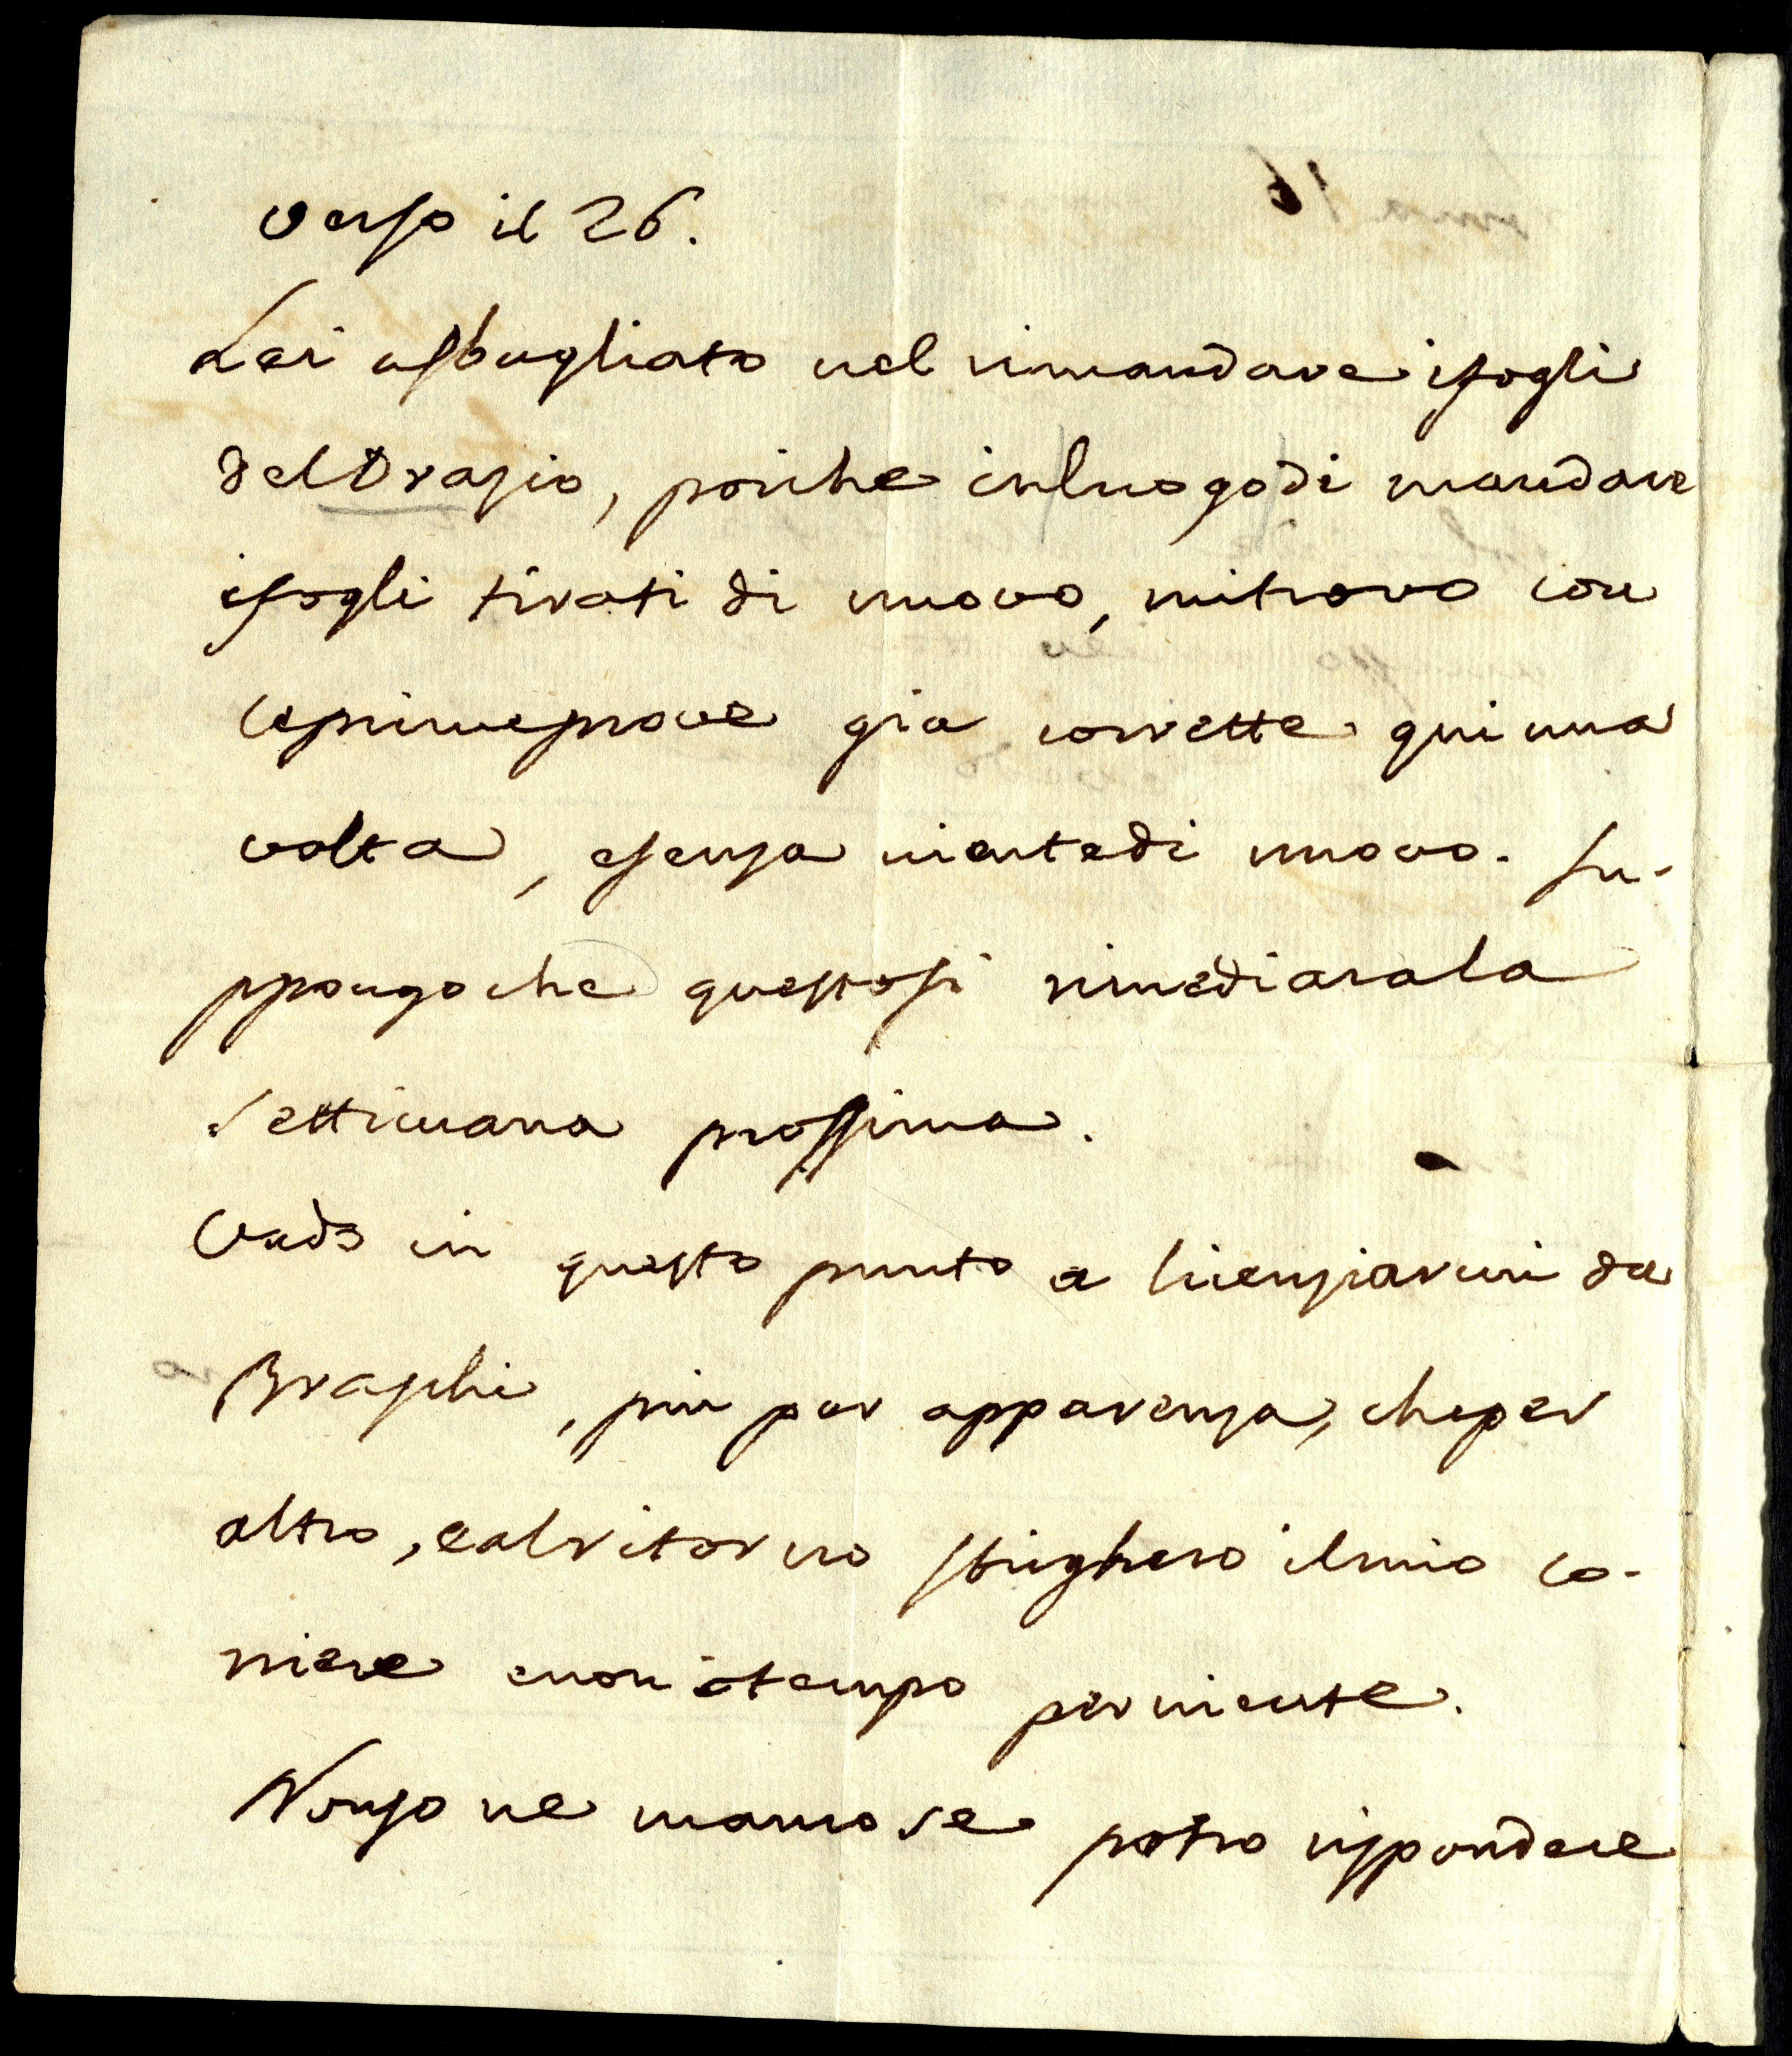 verso il 26.
Lei a sbagliato nel rimandare i fogli
del Orazio, poiche in luogo di mandare
i fogli tirati di nuovo, mi trovo con
le prime prove gia corrette qui una
volta, e senza niente di nuovo. Su-
ppongo che questo si rimediara la
settimana prossima.
Vado in questo punto a licenziarmi da
Braschi, piu per apparenza, che per
altro, e al ritorno sbrighero il mio co-
rriere e non o tempo per niente.
Non so ne manco se potro rispondere